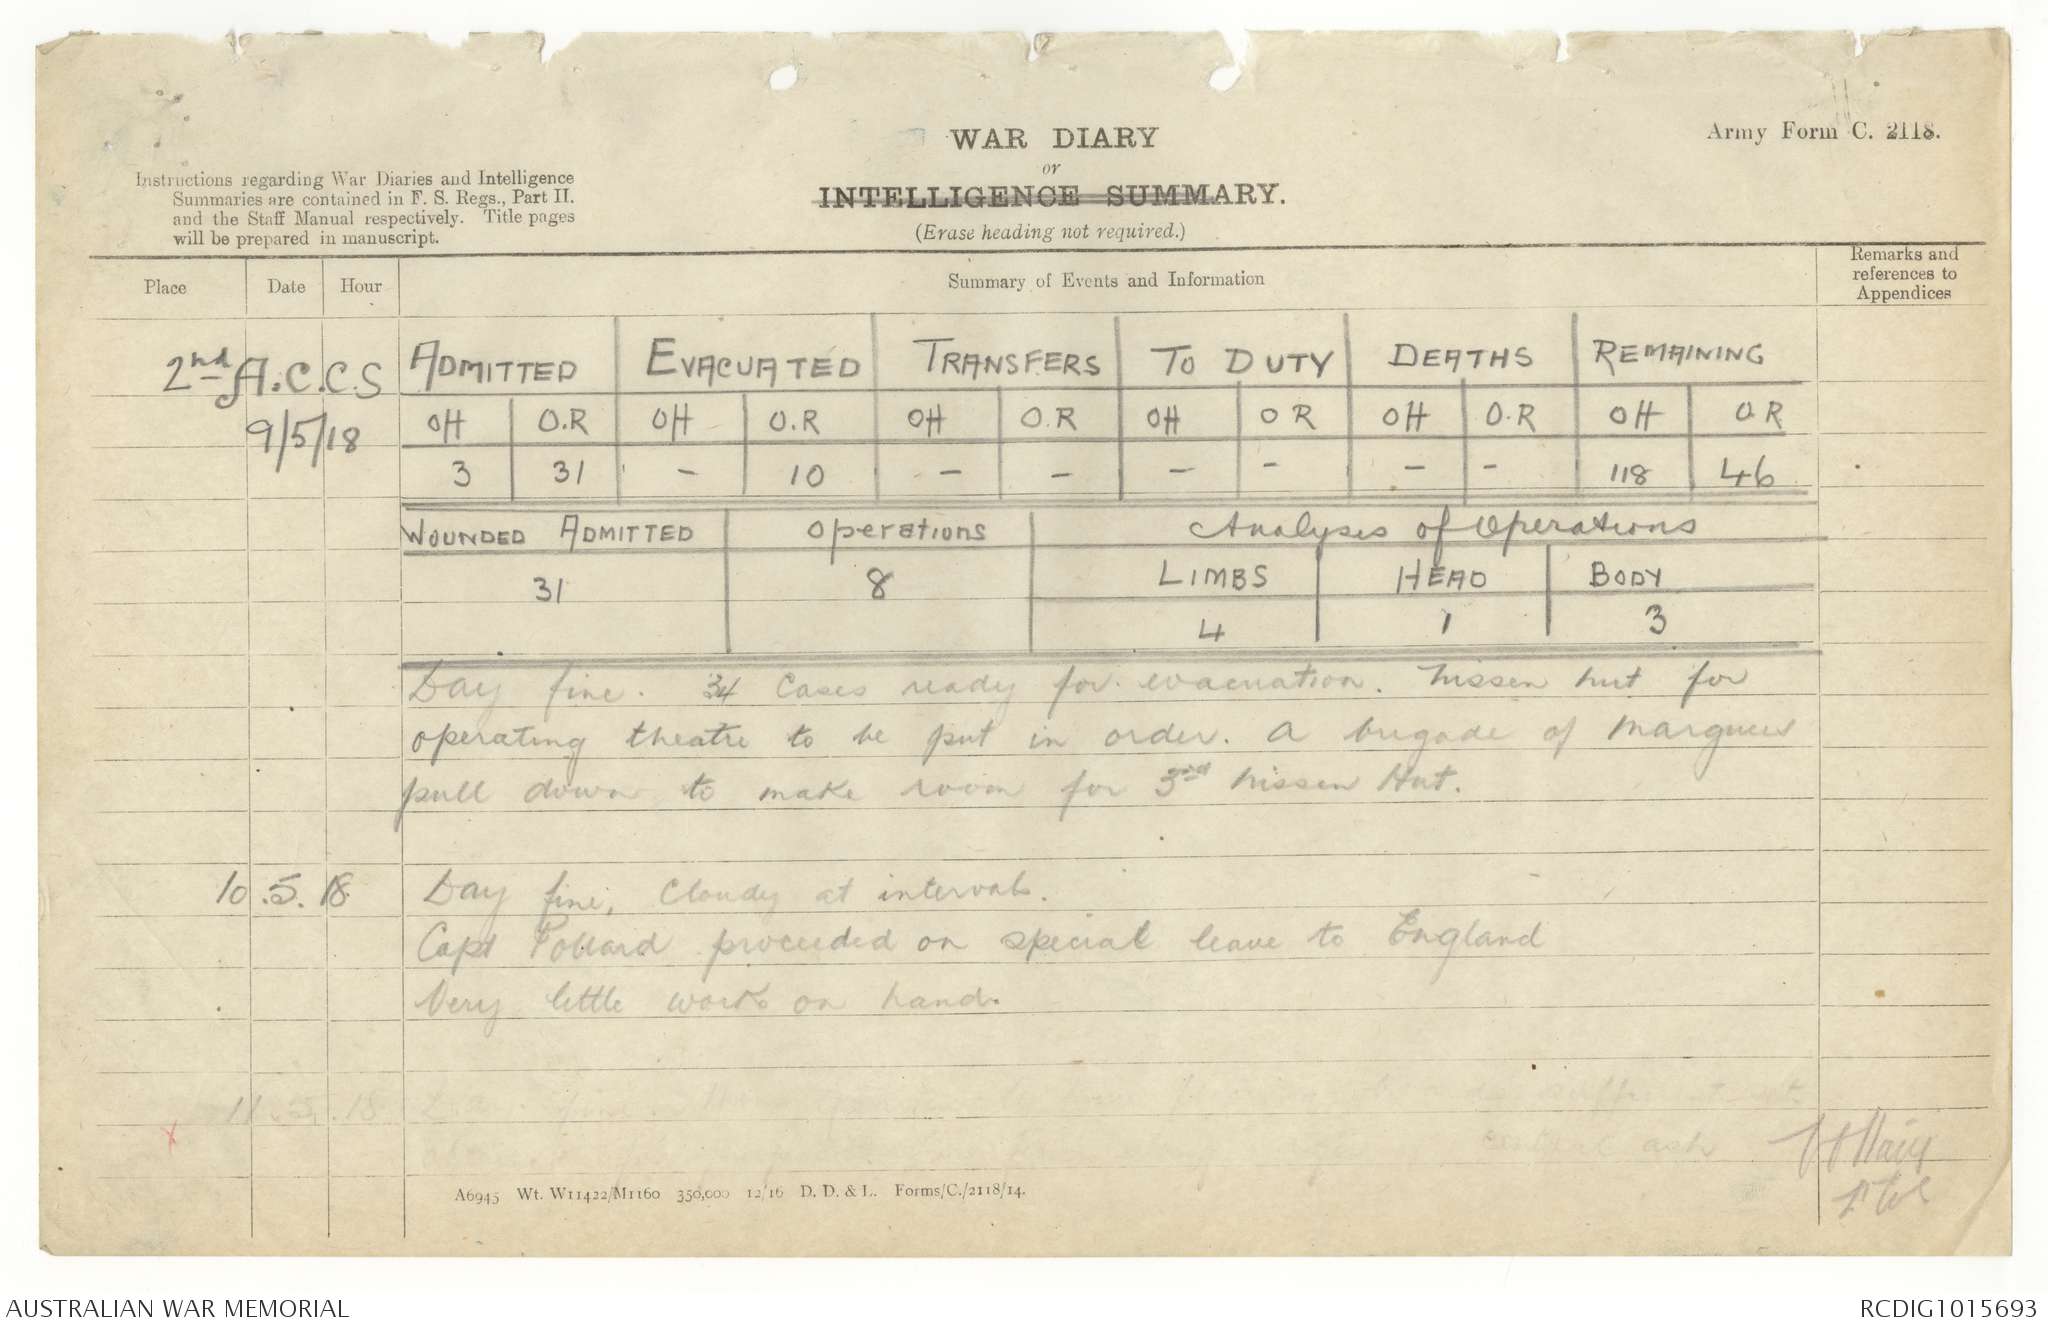 WAR DIARY
or
INTELLIGENCE SUMMARY.
(Erase heading not required.)
Army Form C. 2118.
Instructions regarding War Diaries and Intelligence
Summaries are contained in F. S. Regs., Part II.
and the Staff Manual respectively. Title pages
will be prepared in manuscript.
Place Date Hour Summary of Events and Information Remarks and references to Appendices
2nd A.C.C.S ADMITTED EVACUATED TRANSFERS TO DUTY DEATHS REMAINING
9/5/18 OH O.R OH O.R OH O.R OH OR OH O.R OH OR
3 31 - 10 - - - - - - 118 46
WOUNDED ADMITTED Operations Analyses of Operations
31 8 LIMBS HEAD BODY
4 1 3
Day fine. 34 Cases ready for evacuation. Nissen hut for
operating theatre to be put in order. A brigade of Marquees
pull down to make room for 3rd Nissen Hut.
10.5.18 Day fine, Cloudy at intervals.
Capt Pollard proceeded on special leave to England
Very little work on hand.
11.5.18 Day fine.
A6945 Wt. W11422/M1160 350,000 12/16 D. D. & L. Forms/C./2118/14.
AUSTRALIAN WAR MEMORIAL
RCDIG1015693